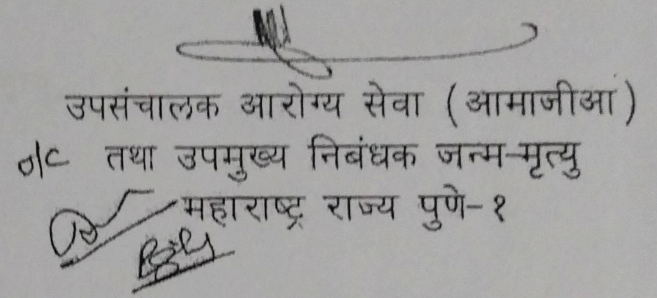 उपसंचालक आरोग्य सेवा (आमाजीआ)
o/c तथा उपमुख्य निबंधक जन्म-मृत्यु
महाराष्ट्र राज्य पुणे-१